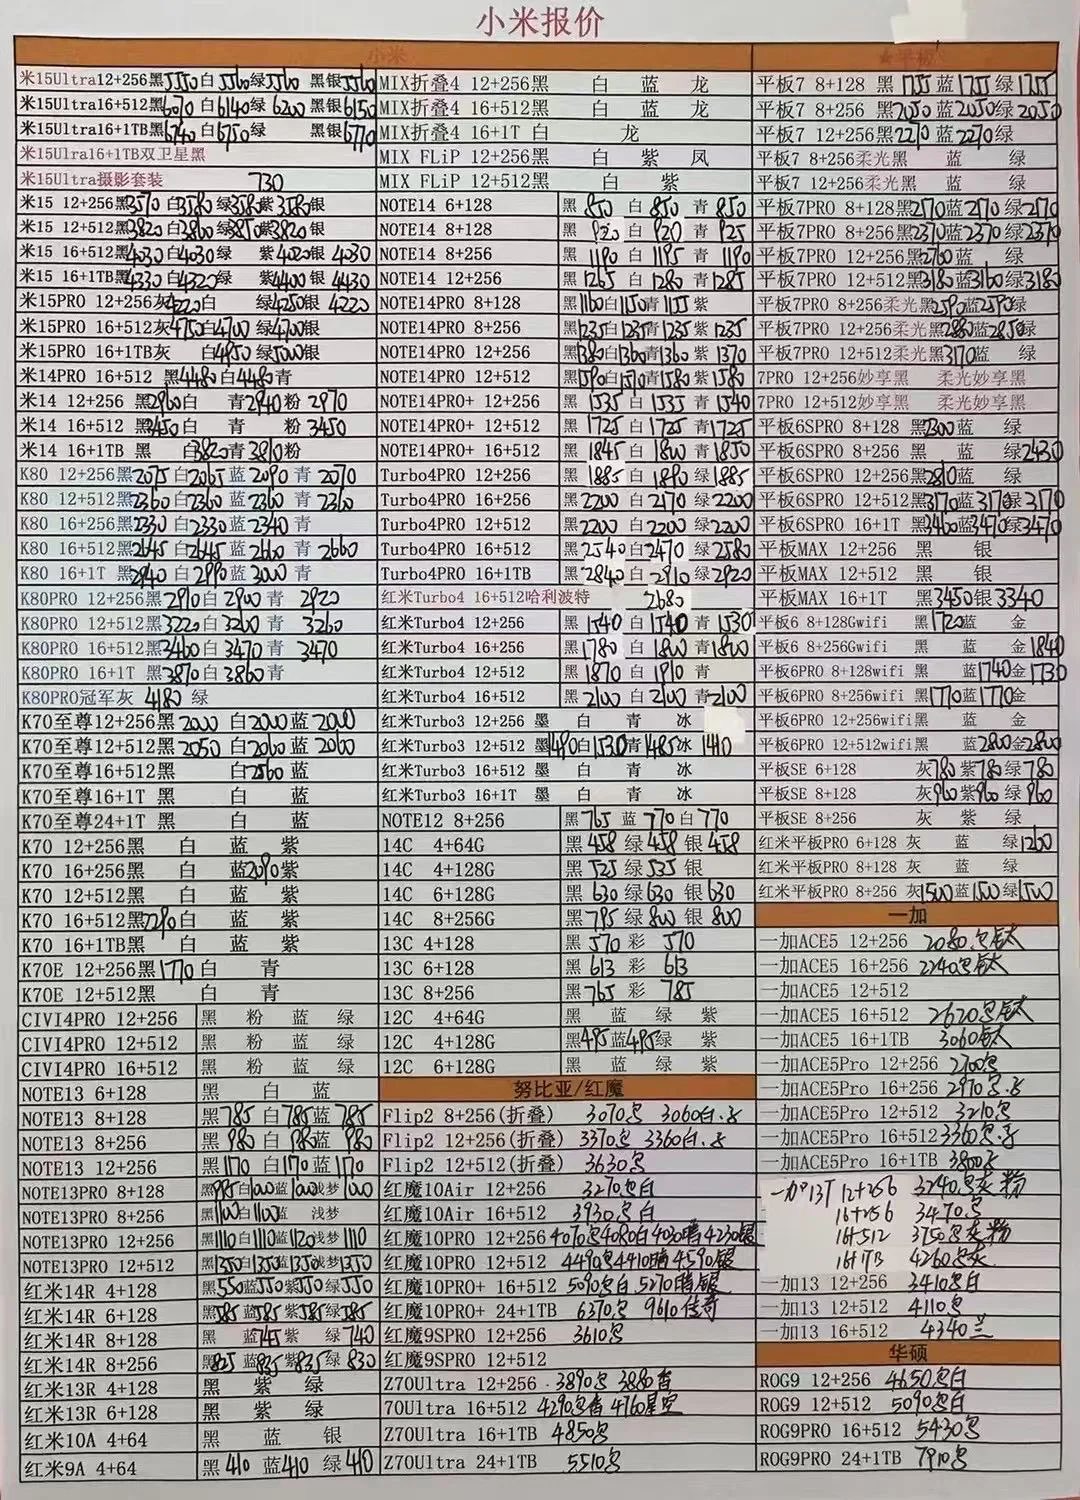 小米报价
小米
米15Ultra12+256黑5550白5560绿5560 黑银5560
米15Ultra16+512黑6070白6140绿6200黑银6150
米15Ultra16+1TB黑6740白6750绿 黑银6770
米15Ulra16+1TB双卫星黑
米15Ultra摄影套装 730
米15 12+256黑3570白3580绿3580紫3580银
米15 12+512黑3820白3860绿3850紫3820银
米15 16+512黑4030白4030绿 紫4020银4030
米15 16+1TB黑4330白4320绿 紫4400银4430
米15PRO 12+256灰4220白 绿4250银4220
米15PRO 16+512灰4750白4700绿4700银
米15PRO 16+1TB灰 白4950绿5000银
米14PRO 16+512 黑4480白4480青
米14 12+256 黑2960白 青2940粉2970
米14 16+512 黑3450白 青 粉3450
米14 16+1TB 黑 白3820青3810粉
K80 12+256黑2075白2065蓝2090青2070
K80 12+512黑2360白2360蓝2360青2360
K80 16+256黑2330白2330蓝2340青
K80 16+512黑2645白2645蓝2660青2660
K80 16+1T 黑2940白2990蓝3000青
K80PRO 12+256黑2910白2900青2920
K80PRO 12+512黑3220白3200青3260
K80PRO 16+512黑3460白3470青3470
K80PRO 16+1T 黑3870白3860青
K80PRO冠军灰 4180 绿
K70至尊12+256黑2000白2000蓝2000
K70至尊12+512黑2050白2060蓝2060
K70至尊16+512黑 白2560蓝
K70至尊16+1T 黑 白 蓝
K70至尊24+1T 黑 白 蓝
K70 12+256黑 白 蓝 紫
K70 16+256黑 白 蓝2090紫
K70 12+512黑 白 蓝 紫
K70 16+512黑2290白 蓝 紫
K70 16+1TB黑 白 蓝 紫
K70E 12+256黑1770白 青
K70E 12+512黑 白 青
CIVI4PRO 12+256 黑 粉 蓝 绿
CIVI4PRO 12+512 黑 粉 蓝 绿
CIVI4PRO 16+512 黑 粉 蓝 绿
NOTE13 6+128 黑 白 蓝
NOTE13 8+128 黑785白785蓝785
NOTE13 8+256 黑980白980蓝980
NOTE13 12+256 黑1170白1170蓝1170
NOTE13PRO 8+128 黑995白1000蓝1000浅梦1000
NOTE13PRO 8+256 黑1100白1100蓝 浅梦
NOTE13PRO 12+256 黑1110白1110蓝1120浅梦1110
NOTE13PRO 12+512 黑1350白1350蓝1350浅梦1350
红米14R 4+128 黑550蓝550紫550绿550
红米14R 6+128 黑585蓝585紫585绿585
红米14R 8+128 黑 蓝745紫 绿740
红米14R 8+256 黑825蓝835紫835绿830
红米13R 4+128 黑 紫 绿
红米13R 6+128 黑 紫 绿
红米10A 4+64 黑 蓝 银
红米9A 4+64 黑410蓝410绿410
MIX折叠4 12+256黑 白 蓝 龙
MIX折叠4 16+512黑 白 蓝 龙
MIX折叠4 16+1T 白 龙
MIX FLiP 12+256黑 白 紫 凤
MIX FLiP 12+512黑 白 紫
NOTE14 6+128 黑850白850青850
NOTE14 8+128 黑920白920青925
NOTE14 8+256 黑1190白1195青1190
NOTE14 12+256 黑1265白1280青1285
NOTE14PRO 8+128 黑1160白1150青1155紫
NOTE14PRO 8+256 黑1235白1235青1235紫1235
NOTE14PRO 12+256 黑1380白1360青1360紫1370
NOTE14PRO 12+512 黑1590白1570青1580紫1580
NOTE14PRO+ 12+256 黑1535白1535青1540
NOTE14PRO+ 12+512 黑1725白1725青1725
NOTE14PRO+ 16+512 黑1845白1840青1850
Turbo4PRO 12+256 黑1885白1890绿1885
Turbo4PRO 16+256 黑2200白2170绿2200
Turbo4PRO 12+512 黑2200白2200绿2200
Turbo4PRO 16+512 黑2540白2470绿2580
Turbo4PRO 16+1TB 黑2840白2910绿2920
红米Turbo4 16+512哈利波特 2680
红米Turbo4 12+256 黑1540白1540青1530
红米Turbo4 16+256 黑1780白1800青1800
红米Turbo4 12+512 黑1870白1910青
红米Turbo4 16+512 黑2100白2100青2100
红米Turbo3 12+256 墨 白 青 冰
红米Turbo3 12+512 墨1490白1530青1485冰1410
红米Turbo3 16+512 墨 白 青 冰
红米Turbo3 16+1T 墨 白 青 冰
NOTE12 8+256 黑765蓝770白770
14C 4+64G 黑458绿458银458
14C 4+128G 黑525绿535银
14C 6+128G 黑630绿630银630
14C 8+256G 黑795绿800银800
13C 4+128 黑570彩570
13C 6+128 黑613彩613
13C 8+256 黑765彩785
12C 4+64G 黑 蓝 绿 紫
12C 4+128G 黑495蓝495绿 紫
12C 6+128G 黑 蓝 绿 紫
努比亚/红魔
Flip2 8+256(折叠) 3070黑 3060白.
Flip2 12+256(折叠) 3370黑 3360白.
Flip2 12+512(折叠) 3630黑
红魔10Air 12+256 3270黑白
红魔10Air 16+512 3930黑白
红魔10PRO 12+256 4070黑4080白4030暗4230银
红魔10PRO 12+512 4490黑4410暗4590银
红魔10PRO+ 16+512 5090黑白5270暗银
红魔10PRO+ 24+1TB 6370黑 9610传奇
红魔9SPRO 12+256 3610黑
红魔9SPRO 12+512
Z70Ultra 12+256 3890黑 3880香
70Ultra 16+512 4290黑香 4760星空
Z70Ultra 16+1TB 4850黑
Z70Ultra 24+1TB 5510黑
★平板
平板7 8+128 黑1755蓝1755绿1755
平板7 8+256 黑2050蓝2050绿2050
平板7 12+256黑2270蓝2270绿
平板7 8+256柔光黑 蓝 绿
平板7 12+256柔光黑 蓝 绿
平板7PRO 8+128黑2170蓝2170绿2170
平板7PRO 8+256黑2370蓝2370绿2370
平板7PRO 12+256黑2760蓝 绿
平板7PRO 12+512黑3180蓝3160绿3180
平板7PRO 8+256柔光黑2590蓝2590绿
平板7PRO 12+256柔光黑2880蓝2850绿
平板7PRO 12+512柔光黑3170蓝 绿
7PRO 12+256妙享黑 柔光妙享黑
7PRO 12+512妙享黑 柔光妙享黑
平板6SPRO 8+128 黑2300蓝 绿
平板6SPRO 8+256 黑 蓝 绿2430
平板6SPRO 12+256黑2810蓝 绿
平板6SPRO 12+512黑3170蓝3170绿3170
平板6SPRO 16+1T 黑3460蓝3470绿3470
平板MAX 12+256 黑 银
平板MAX 12+512 黑 银
平板MAX 16+1T 黑3450银3340
平板6 8+128Gwifi 黑1720蓝 金
平板6 8+256Gwifi 黑 蓝 金1840
平板6PRO 8+128wifi 黑 蓝1740金1730
平板6PRO 8+256wifi 黑1770蓝1770金
平板6PRO 12+256wifi黑 蓝 金
平板6PRO 12+512wifi黑 蓝2800金2800
平板SE 6+128 灰780紫780绿780
平板SE 8+128 灰960紫960绿960
平板SE 8+256 灰 紫 绿
红米平板PRO 6+128 灰 蓝 绿1260
红米平板PRO 8+128 灰 蓝 绿
红米平板PRO 8+256 灰1500蓝1500绿1500
一加
一加ACE5 12+256 2080.黑钛
一加ACE5 16+256 2240黑钛
一加ACE5 12+512
一加ACE5 16+512 2670黑钛
一加ACE5 16+1TB 3060钛
一加ACE5Pro 12+256 2700黑
一加ACE5Pro 16+256 2970黑.
一加ACE5Pro 12+512 3210黑
一加ACE5Pro 16+512 3360黑.
一加ACE5Pro 16+1TB 3800
一加13T 12+256 3240黑灰粉
16+256 3470黑
16+512 3750黑灰粉
16+1TB 4260黑灰
一加13 12+256 3410黑白
一加13 12+512 4110黑
一加13 16+512 4340兰
华硕
ROG9 12+256 4650黑白
ROG9 12+512 5090黑白
ROG9PRO 16+512 5430黑
ROG9PRO 24+1TB 7910黑